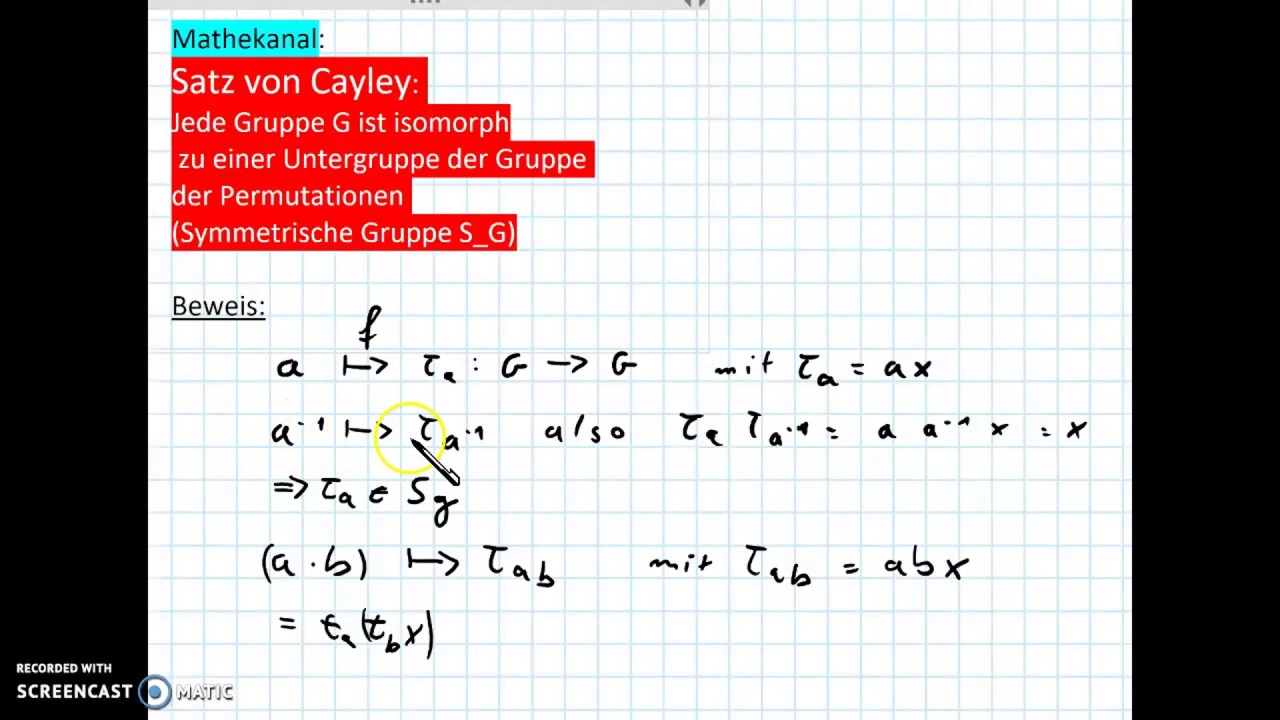 Mathekanal:
Satz von Cayley:
Jede Gruppe G ist isomorph
zu einer Untergruppe der Gruppe
der Permutationen
(Symmetrische Gruppe S_G)
Beweis:
f
a ↦ τₐ : G → G mit τₐ = ax
a⁻¹ ↦ τ_a⁻¹ also τₐ τ_a⁻¹ = a a⁻¹ x = x
⇒ τₐ ∈ S_g
(a · b) ↦ τ_ab mit τ_ab = abx
= τₐ(τ_b x)
RECORDED WITH
SCREENCAST MATIC